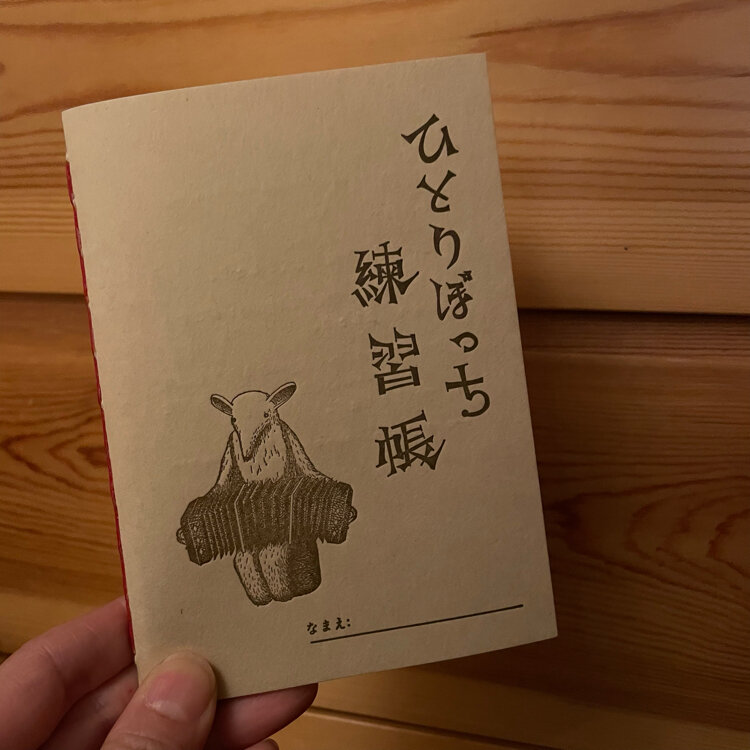 ひとりぼっち
練習帳
なまえ: